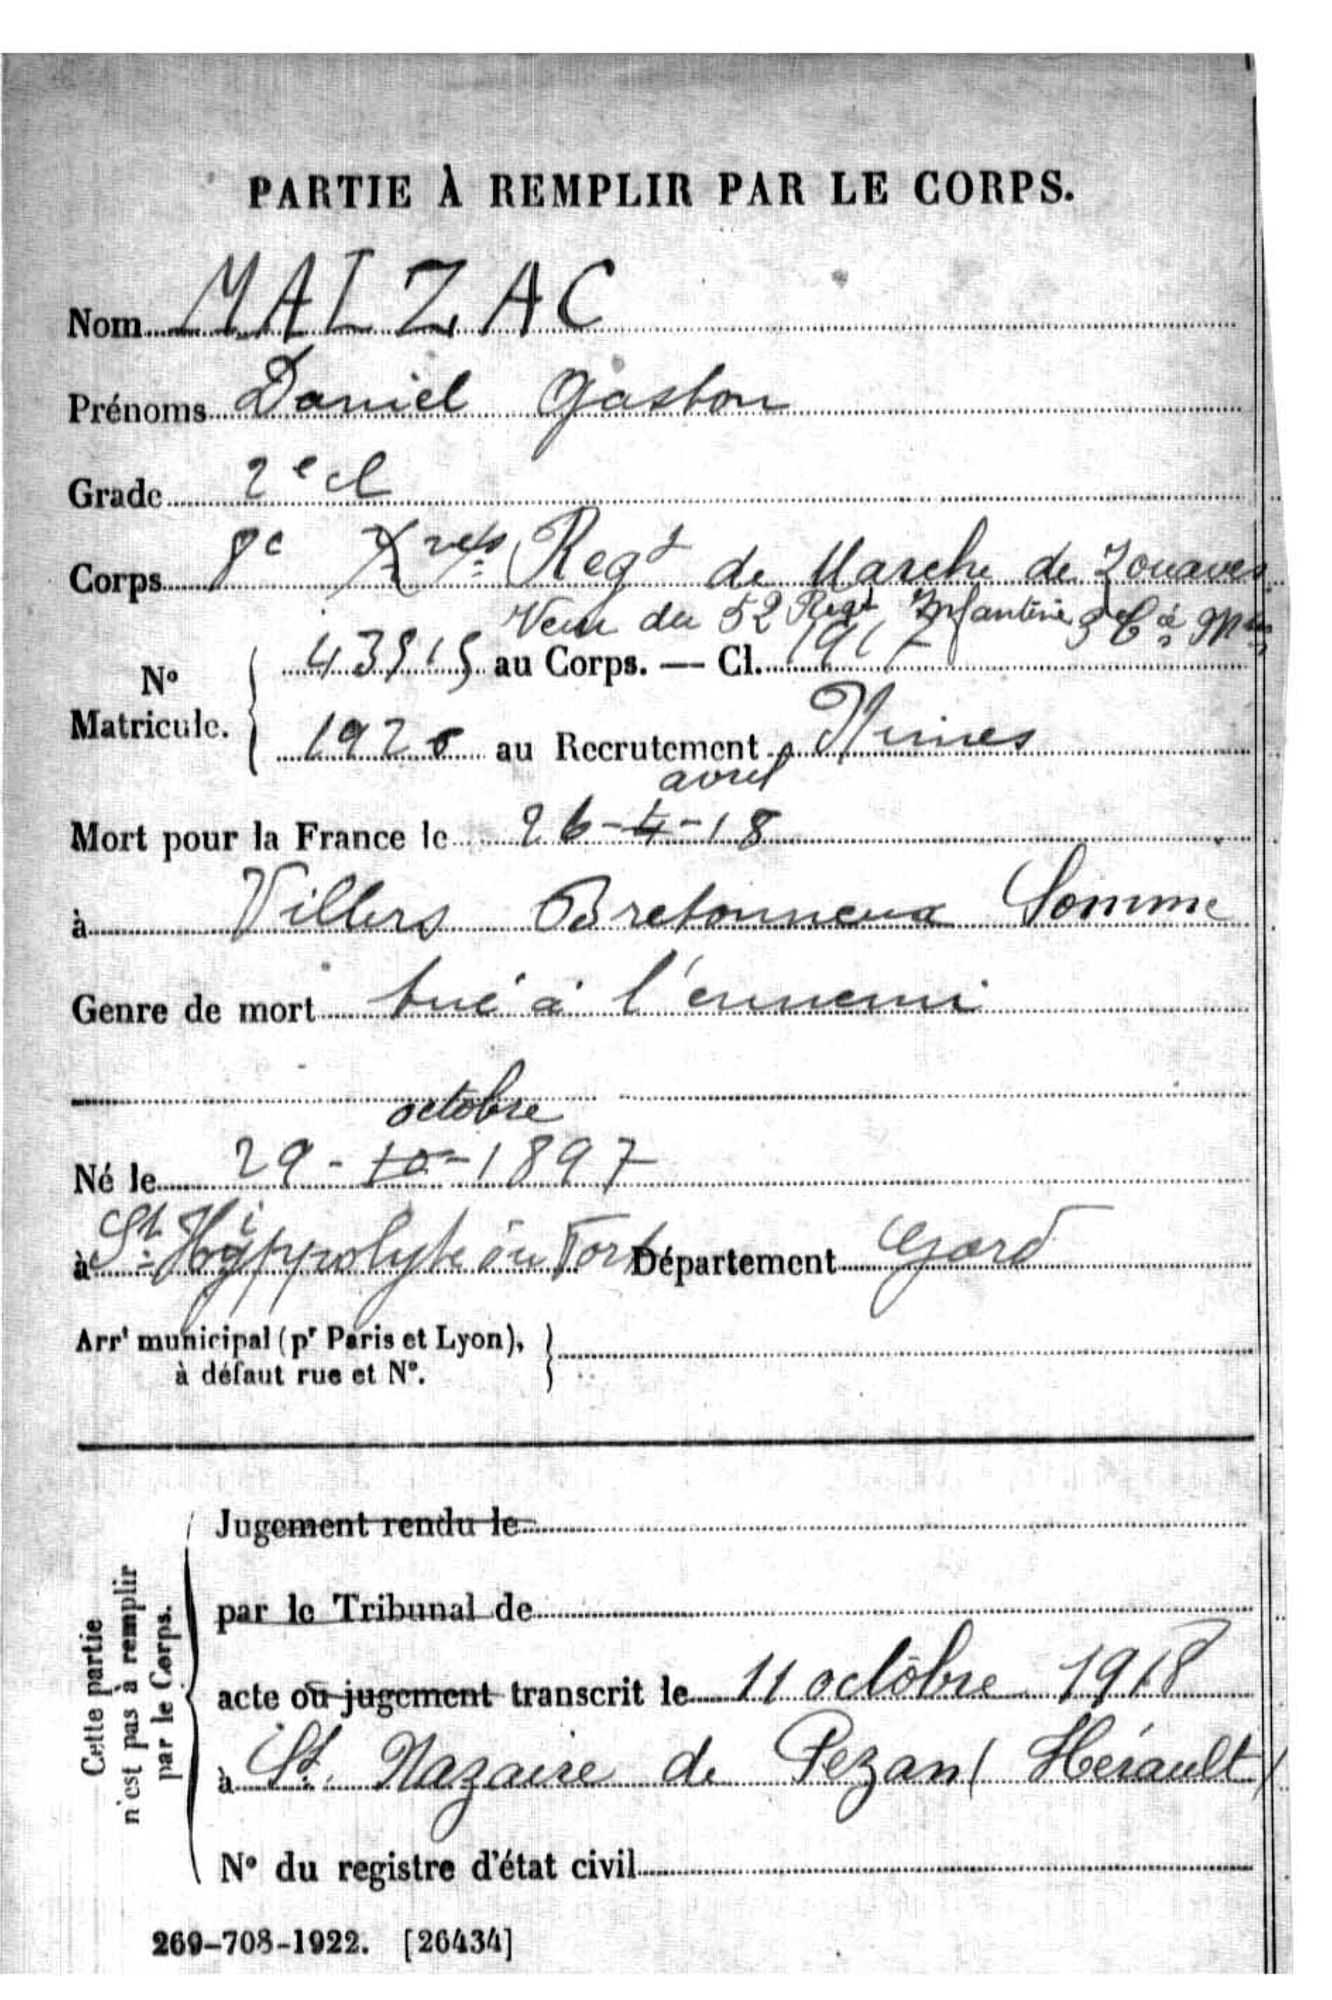 PARTIE À REMPLIR PAR LE CORPS.
Nom MALZAC
Prénoms Daniel Gaston
Grade 2e cl
Corps 8e Regt de Marche de Zouaves
Venu du 52 Regt Infanterie
N° Matricule. 43515 au Corps. — Cl. 1917
1920 au Recrutement Nimes
avril
Mort pour la France le 26-4-18
à Villers Bretonneux Somme
Genre de mort tué à l'ennemi
octobre
Né le 29-10-1897
à St Hyppolyte du Fort Département Gard
Arrt municipal (pr Paris et Lyon),
à défaut rue et N°.
Cette partie
n'est pas à remplir
par le Corps.
Jugement rendu le
par le Tribunal de
acte ou jugement transcrit le 11 octobre 1918
à St. Nazaire de Pezan (Hérault)
N° du registre d'état civil
269-708-1922. [26434]